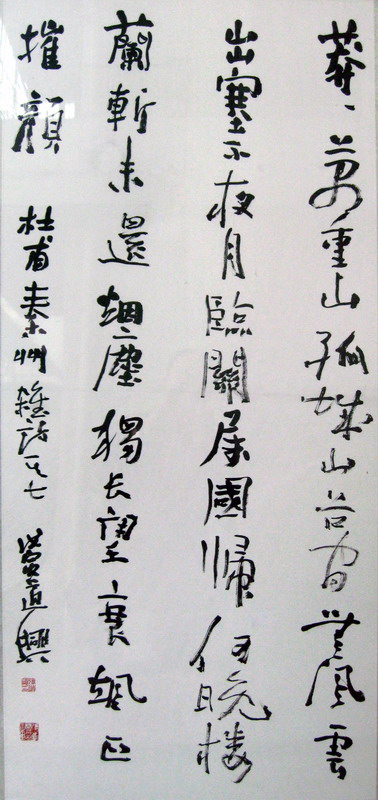 莽莽萬重山孤城山谷间無風雲
出塞不夜月臨關属國歸何晚楼
蘭斬未還烟塵獨长望衰颯正
摧顔 杜甫秦州雜詩其七 道興